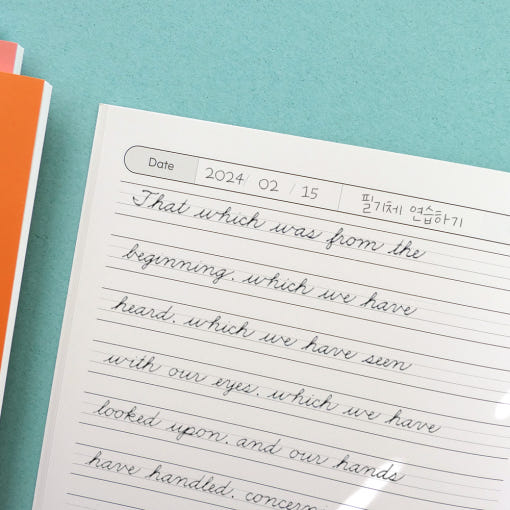 Date 2024 / 02 / 15 필기체 연습하기
That which was from the
beginning. which we have
heard. which we have seen
with our eyes. which we have
looked upon. and our hands
have handled. concerni